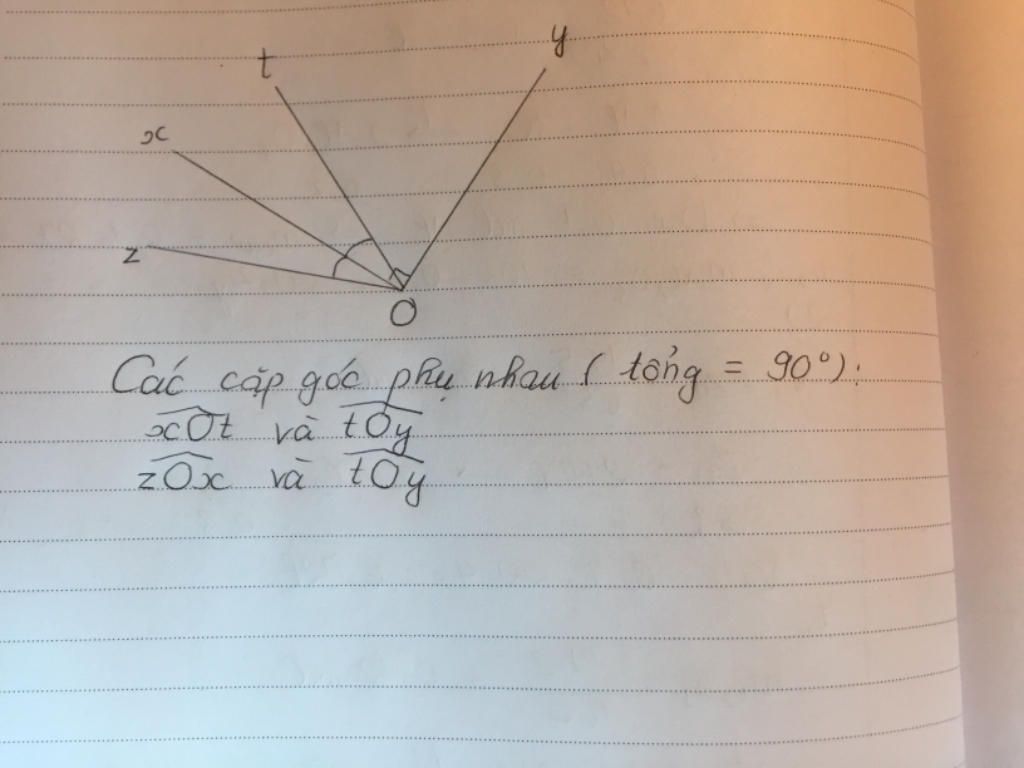 t
y
x
z
O
Các cặp góc phụ nhau ( tổng = 90°):
xOt và tOy
zOx và tOy